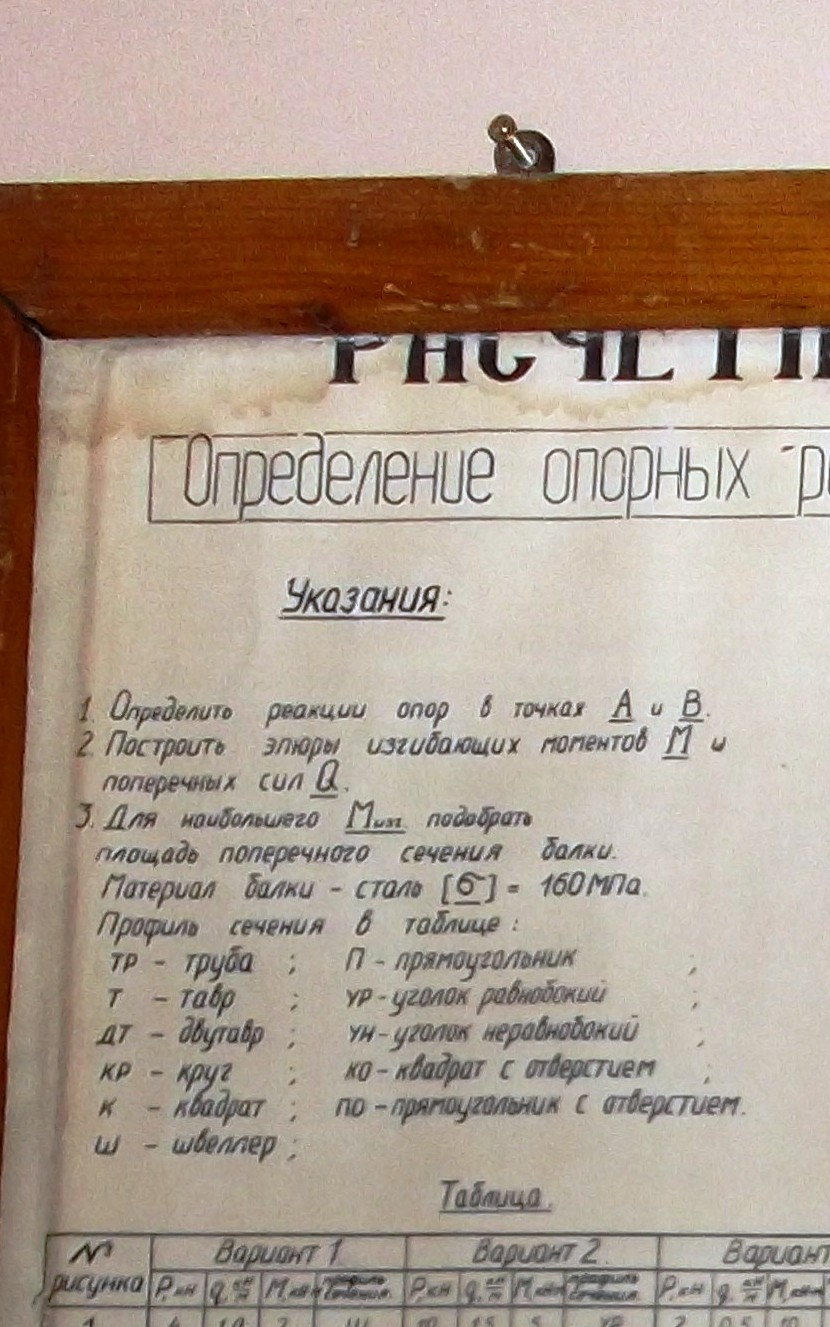 РАСЧЕТН
Определение опорных ре
Указания:
1. Определить реакции опор в точках А и В.
2. Построить эпюры изгибающих моментов М и
поперечных сил Q.
3. Для наибольшего Мизг. подобрать
площадь поперечного сечения балки.
Материал балки - сталь [б] = 160 МПа.
Профиль сечения в таблице:
ТР - труба ; П - прямоугольник ;
Т - тавр ; УР - уголок равнобокий ;
ДТ - двутавр ; УН - уголок неравнобокий ;
КР - круг ; КО - квадрат с отверстием ;
К - квадрат ; ПО - прямоугольник с отверстием.
Ш - швеллер ;
Таблица.
№ Вариант 1 Вариант 2 Вариант
рисунка Р, кн q, кн/м М, кнм профиль сечения Р, кн q, кн/м М, кнм профиль сечения Р, кн q, кн/м М, кнм